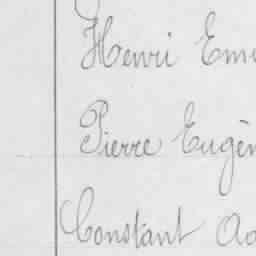 Henri Emi
Pierre Eugèn
Constant Ad